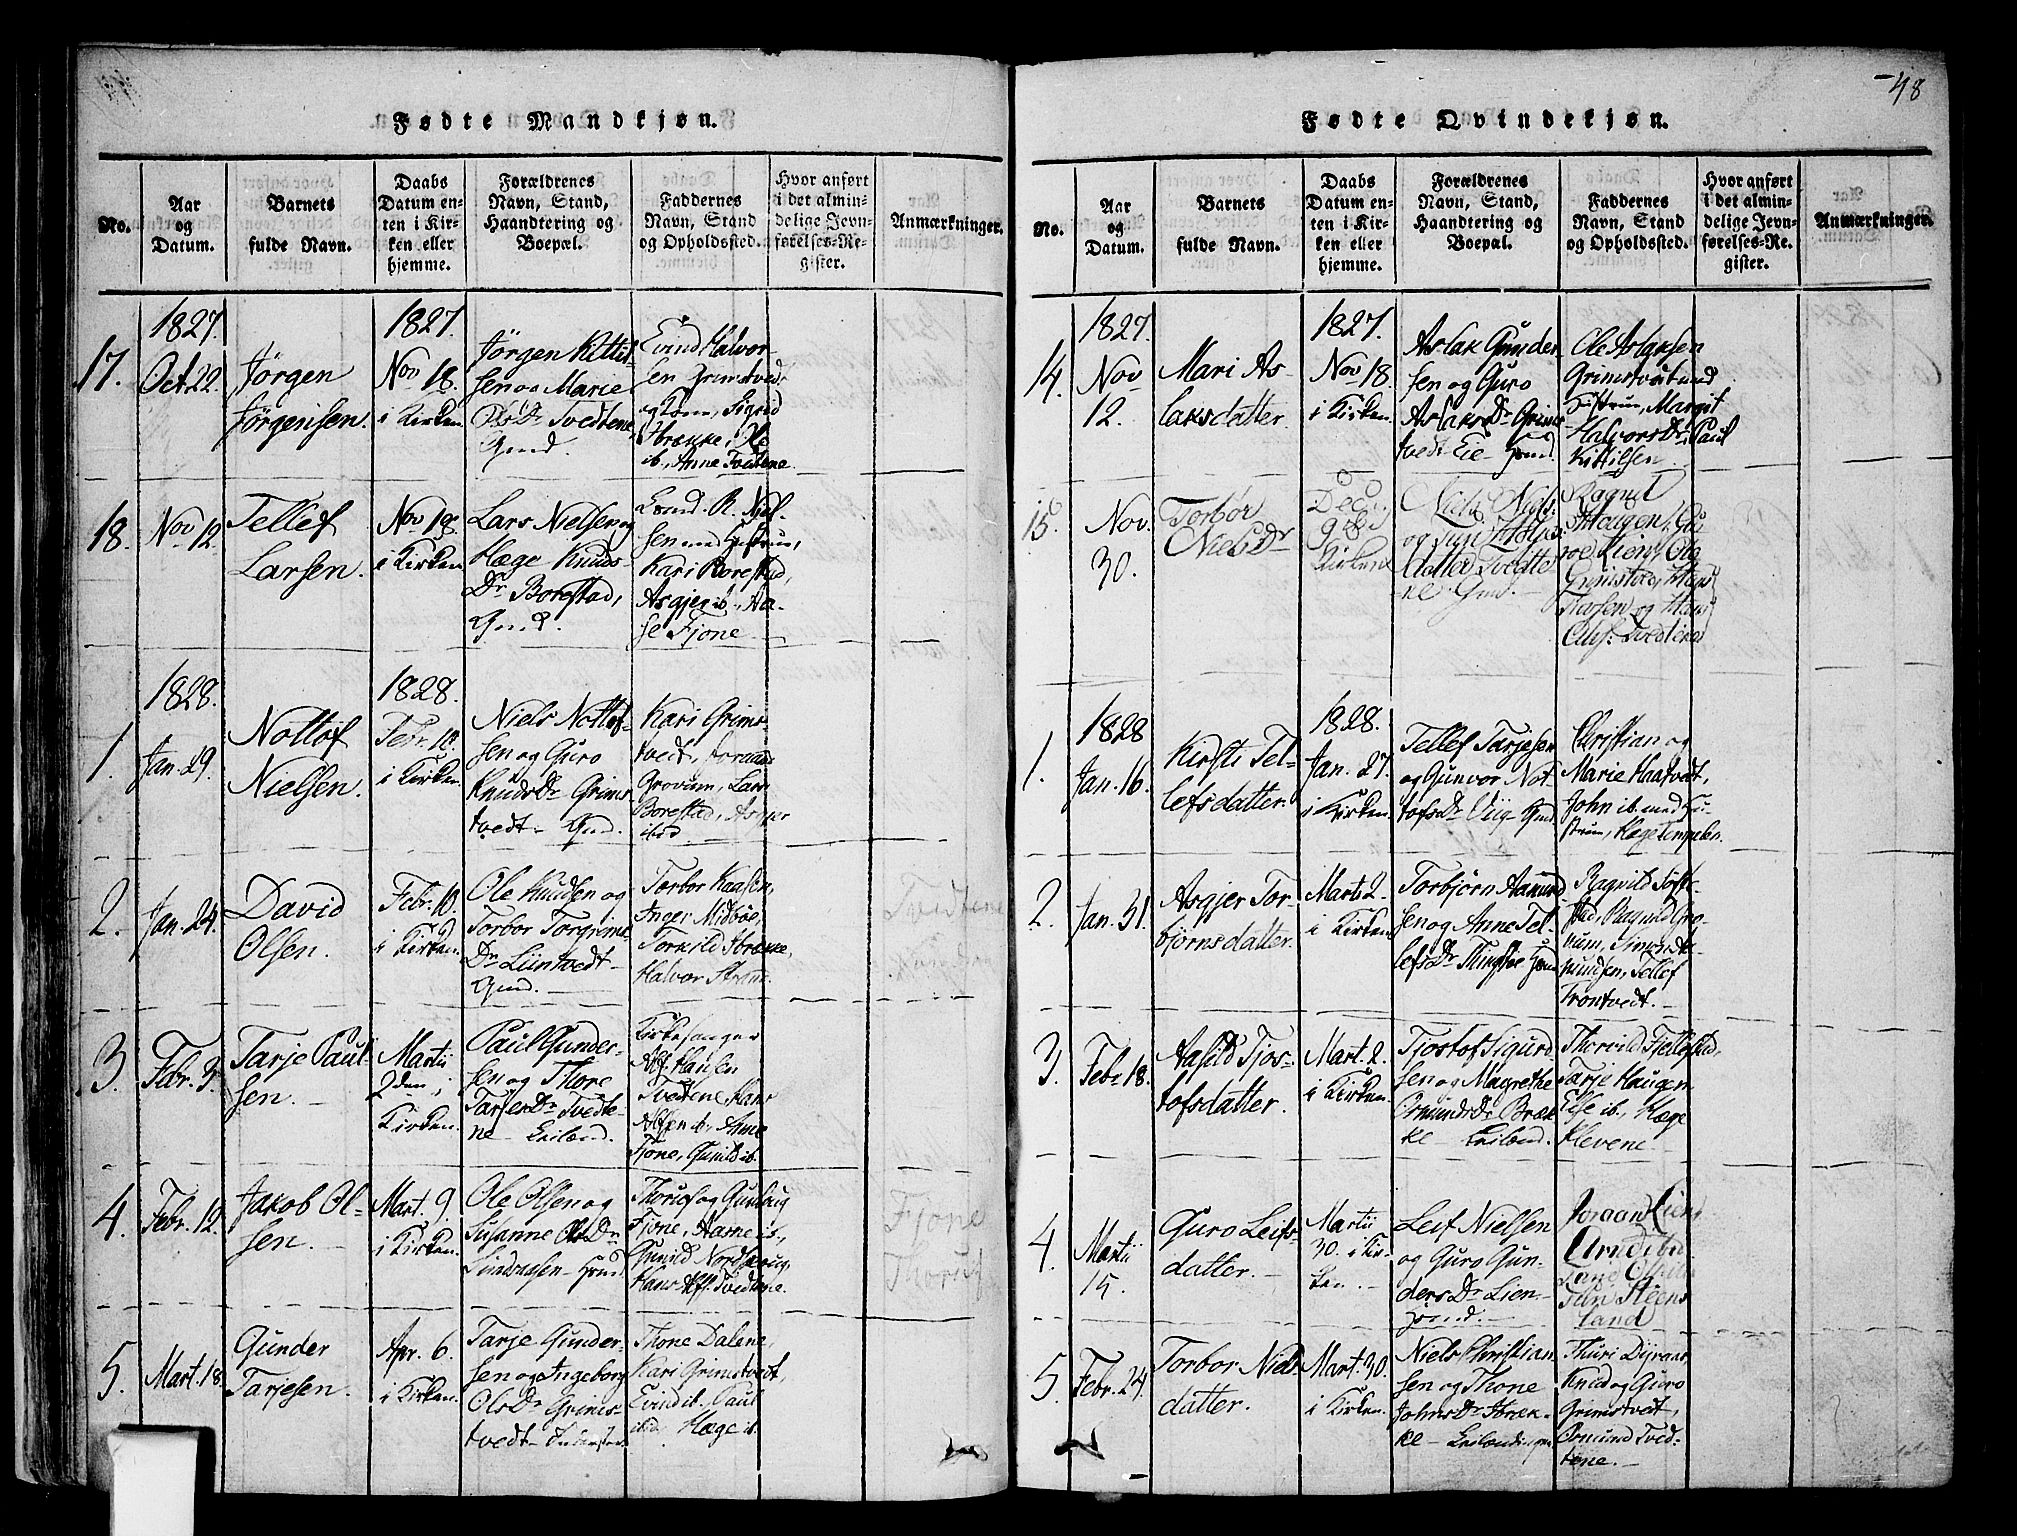 48
Fødte Mandkjøn.
No.
Aar
og
Datum.
Barnets
fulde Navn.
Daabs
Datum en-
ten i Kir-
ken eller
hjemme.
Forældrenes
Navn, Stand,
Haandtering og
Boepæl.
Faddernes
Navn, Stand
og Opholdssted.
Hvor anført
i det almin-
delige Jevn-
førelses-Re-
gister.
Anmærkninger.
17.
1827.
Oct. 22.
Jørgen
Jørgensen.
1827.
Nov 18.
i Kirken
Jørgen Kittil-
sen og Marie
Ols Dr Tvedtene
Gmd.
Evind Halvor-
sen Grimstved
og Kone, Sigrid
BræKKe, Ole
ib., Anne Tvedtene.
18.
Nov 12.
Tellef
Larsen.
Nov 18.
i Kirken
Lars Nielsen og
Hæge Knuds
Dr Borestad,
Gmd.
Kari Borestad,
Asgjer ib., Aa-
se Fjone
1828.
1.
Jan. 29.
Nottof
Nielsen.
1828.
Febr. 10.
i Kirken
Niels Nottof-
sen og Guro
Knuds Dr Grims-
tvedt - Gmd.
Kari Grims
tvedt, Joraand
Grovum, Lars
Borestad, Asgjer
ibid
2.
Jan. 24.
David
Olsen.
Febr. 10.
i Kirken.
Ole Knudsen og
Torbor Torgrims
Dr Liintvedt -
Gmd.
Torbor Kaasen,
Inger Midbøe,
Torkild BræKKe,
Halvor Strann.
3.
Febr. 3.
Tarje Paul-
sen.
Martii
2den i
Kirken.
Paul Gunder-
sen og Thore
Tarjes Dr Tvedte-
ne - Leilænd.
Kirkesanger
Alf Hansen
Tvedtene, Hans
Alfsen ib., Anne
Fjone, Gunild ib.
4.
Febr. 12.
Jakob Ol-
sen.
Mart. 9.
i Kirken.
Ole Olsen og
Susanne Ols Dr
Fjone, Aasne ib.,
Gunild Nordhaug,
Hans Alfs. Tvedtene.
Fjone
5.
Mart. 18.
Gunder
Tarjesen.
Apr. 6.
i Kirken.
Tarje Gunder-
sen og Ingeborg
Ols Dr Grims-
tvedt
Thone Dalene,
Kari Grimstvedt,
Evind ib. Paul
ibid, Hæge ib.
Fødte Qvindekjøn.
No.
Aar
og
Datum.
Barnets
fulde Navn.
Daabs
Datum en-
ten i Kir-
ken eller
hjemme.
Forældrenes
Navn, Stand,
Haandtering og
Boepæl.
Faddernes
Navn, Stand
og Opholdssted.
Hvor anført
i det almin-
delige Jevn-
førelses-Re-
gister.
Anmærkninger.
14.
1827.
Nov
12.
Mari As-
laksdatter.
1827.
Nov 18.
i Kirken.
Aslak Gunder-
sen og Guro
Aslaks Dr Grims-
tvedt Eie
Ole Aslaksen
Grimstvedt med
Hustrue, Margit
Halvors Dr, Paul
Kittilsen.
15.
Nov.
30.
Torbør
Niels Dr
Dec.
9
Kirken
Niels Niels.
datter Tvedte
ne Gmd.
Ragnil
Haugen, Gu
roe Lien, Ole
Grimstved, Hans
Tarjesen og Hans
Alfs. Tvedtene
1828
1.
Jan. 16.
Kirsti Tel-
lefsdatter.
1828.
Jan. 27.
i Kirken.
Tellef Tarjesen
og Gunvor Not-
tofs Dr Viig Gmd
Christian og
Marie Haatvedt,
John ib. med Hu-
strue, Hæge Tempelen.
2.
Jan. 31.
Asgjer Tor-
bjørnsdatter.
Marts 2.
i Kirken
Torbjørn Aamund-
sen og Anne Tel-
lefs Dr
Trontvedt.
3.
Febr 18.
Aasild Tjos-
tofsdatter.
Mart. 2.
i Kirken.
Tjostof Sigurd-
sen og Magrethe
Osmunds Dr Bræk-
ke - Leilænd.
Thorvild Fjellestad,
Tarje Haugen
Else ib. Hæge
Klevene
4.
Martii
15.
Guro Leifs-
datter.
Martii
30. i Kir-
ken.
Leif Nielsen
og Guro Gun-
ders Dr Lien -
Joraand Lien
land
5.
Febr. 24.
Torbor Niels-
datter.
Mart. 30.
i Kirken.
Niels Christian-
sen og Thone
Johns Dr Bræk-
ke
Knud og Guro
Grimstvedt,
Osmund Tved-
tene.